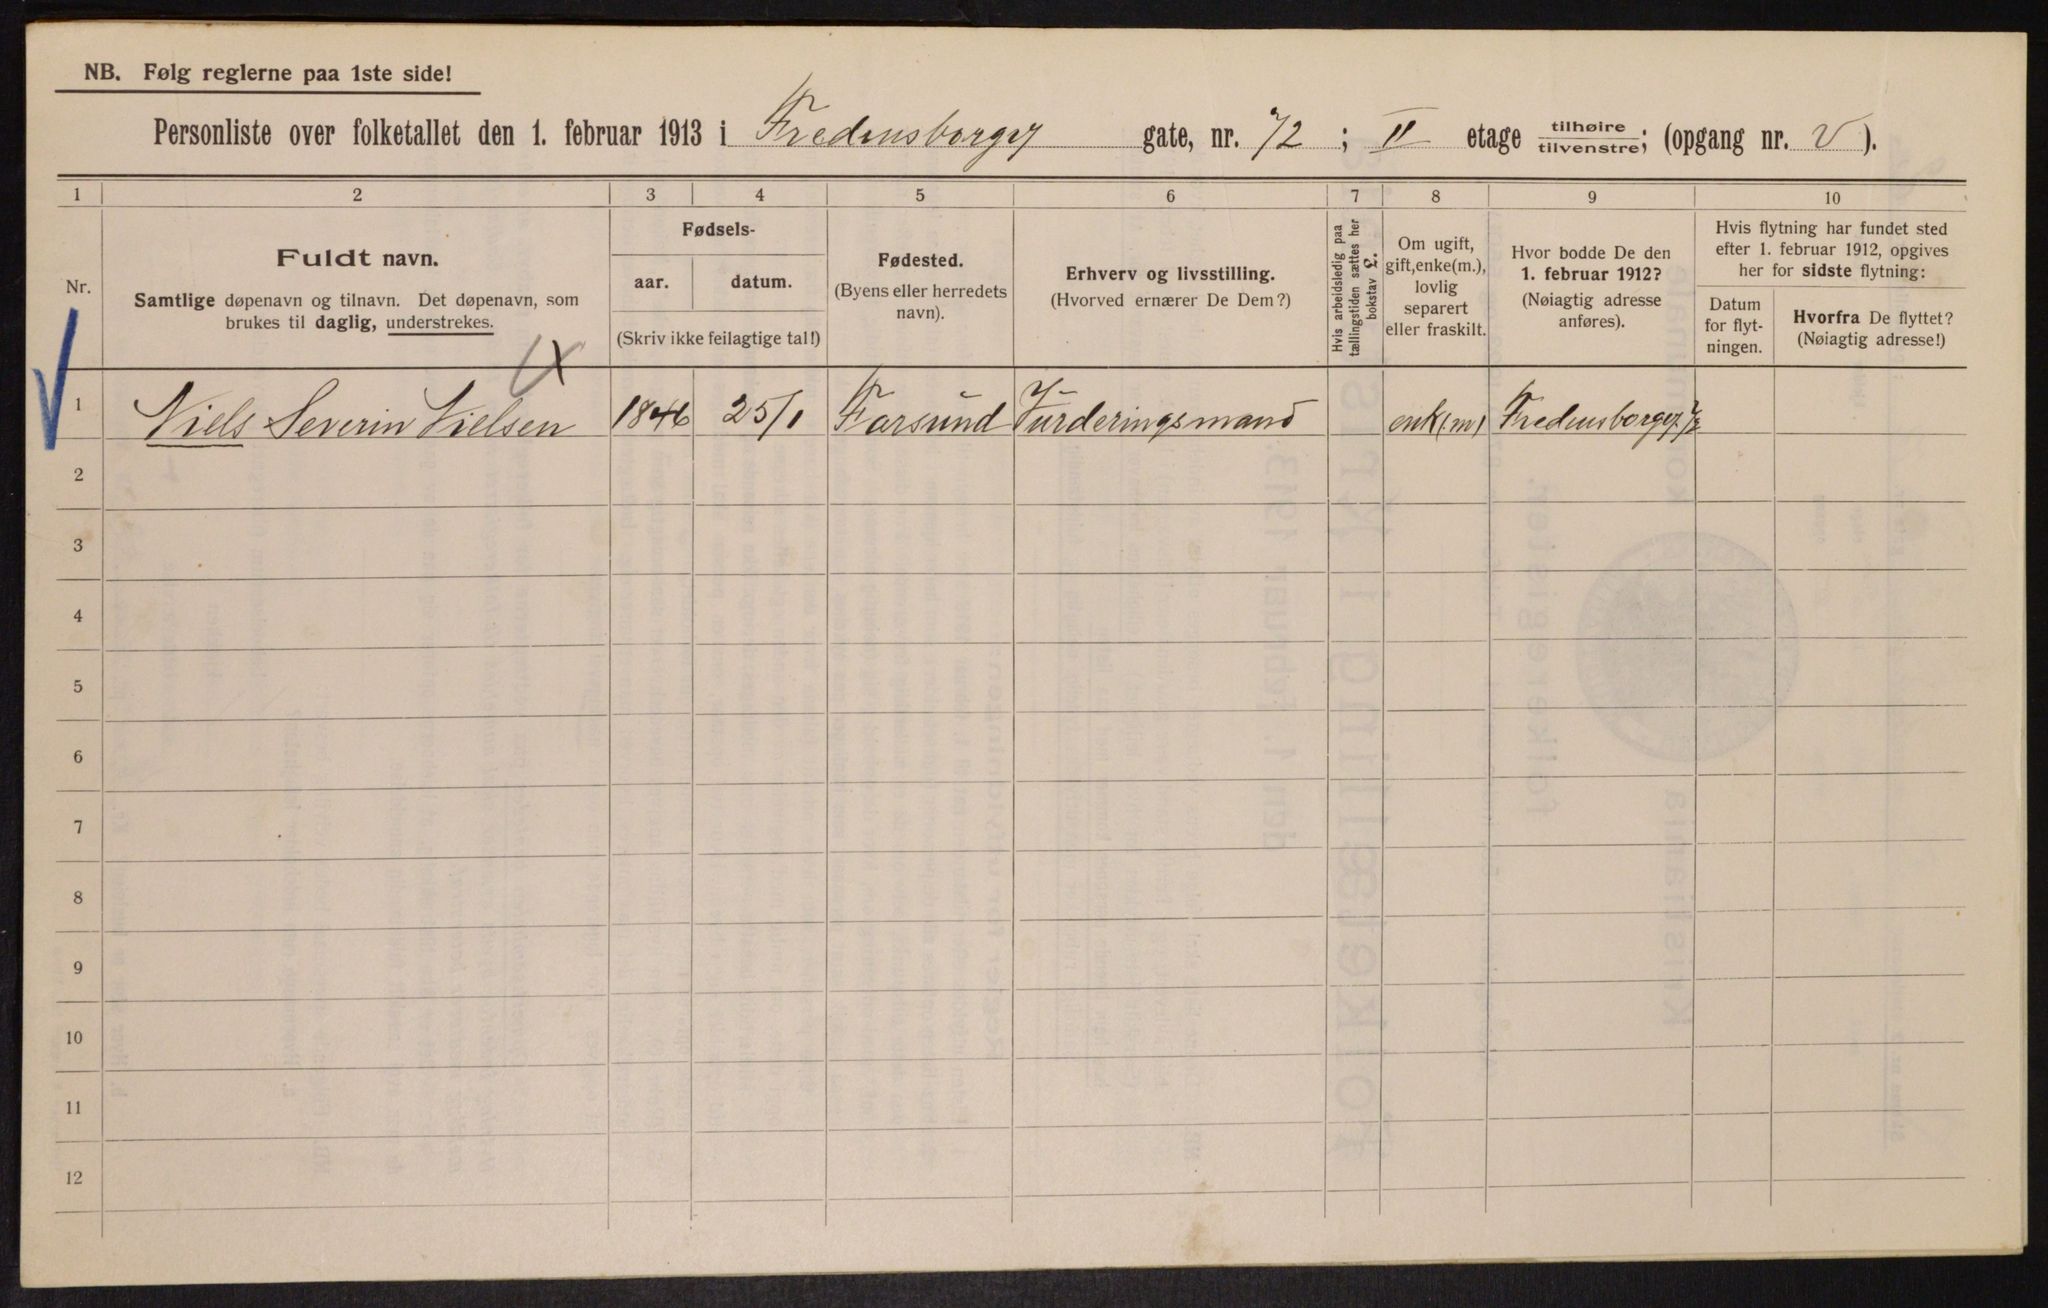 NB. Følg reglerne paa 1ste side!
Personliste over folketallet den 1. februar 1913 i Fredensborgv gate, nr. 72 ; II etage tilhøire / tilvenstre; (opgang nr. V).
1 2 3 4 5 6 7 8 9 10
Nr.
Fuldt navn.
Samtlige døpenavn og tilnavn. Det døpenavn, som
brukes til daglig, understrekes.
Fødsels-
aar. datum.
(Skriv ikke feilagtige tal!)
Fødested.
(Byens eller herredets
navn).
Erhverv og livsstilling.
(Hvorved ernærer De Dem?)
Hvis arbeidsledig paa
tællingstiden sættes her
bokstav L.
Om ugift,
gift, enke(m.),
lovlig
separert
eller fraskilt.
Hvor bodde De den
1. februar 1912?
(Nøiagtig adresse
anføres).
Hvis flytning har fundet sted
efter 1. februar 1912, opgives
her for sidste flytning:
Datum
for flyt-
ningen.
Hvorfra De flyttet?
(Nøiagtig adresse!)
1 Niels Severin Nielsen 1846 25/1 Farsund Vurderingsmand enk(m) Fredensborgv. 72
2
3
4
5
6
7
8
9
10
11
12